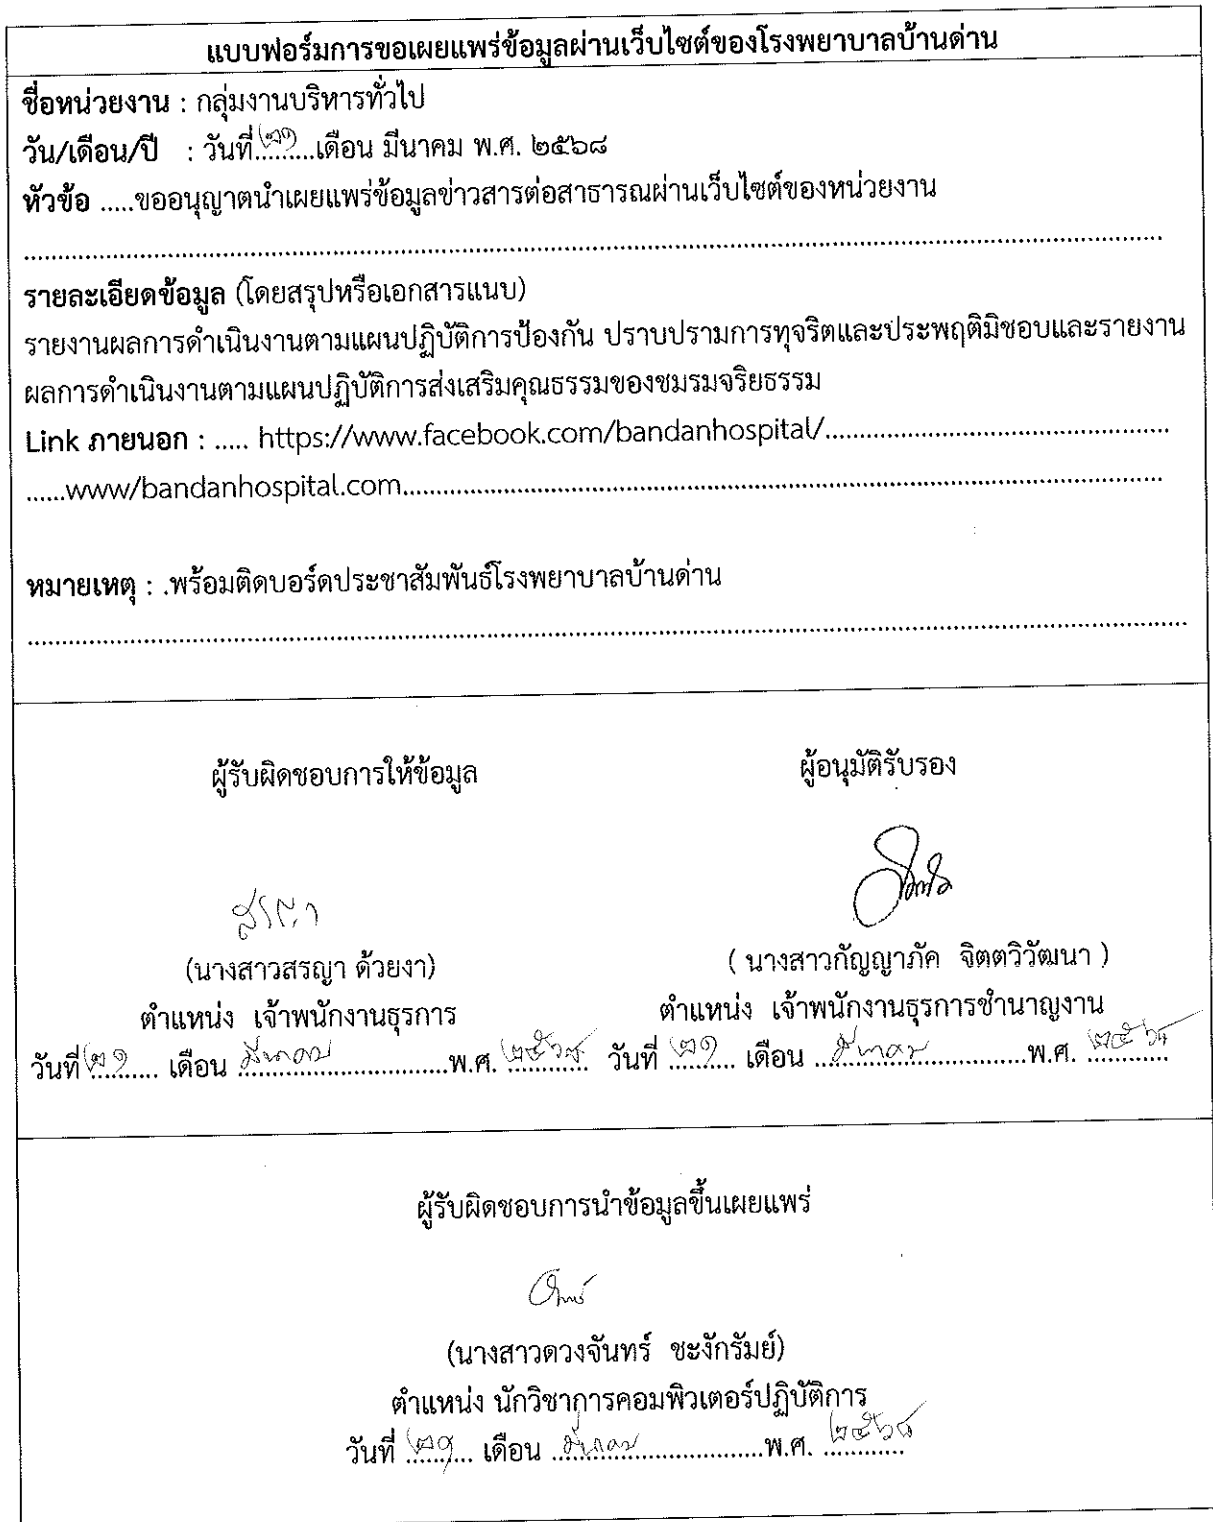 แบบฟอร์มการขอเผยแพร่ข้อมูลผ่านเว็บไซต์ของโรงพยาบาลบ้านด่าน
ชื่อหน่วยงาน : กลุ่มงานบริหารทั่วไป
วัน/เดือน/ปี : วันที่...๒๑...เดือน มีนาคม พ.ศ. ๒๕๖๘
หัวข้อ .....ขออนุญาตนำเผยแพร่ข้อมูลข่าวสารต่อสาธารณผ่านเว็บไซต์ของหน่วยงาน
รายละเอียดข้อมูล (โดยสรุปหรือเอกสารแนบ)
รายงานผลการดำเนินงานตามแผนปฏิบัติการป้องกัน ปราบปรามการทุจริตและประพฤติมิชอบและรายงาน
ผลการดำเนินงานตามแผนปฏิบัติการส่งเสริมคุณธรรมของชมรมจริยธรรม
Link ภายนอก : ..... https://www.facebook.com/bandanhospital/..........
......www/bandanhospital.com..........
หมายเหตุ : .พร้อมติดบอร์ดประชาสัมพันธ์โรงพยาบาลบ้านด่าน
ผู้รับผิดชอบการให้ข้อมูล ผู้อนุมัติรับรอง
สรญา
(นางสาวสรญา ด้วยงา) ( นางสาวกัญญาภัค จิตตวิวัฒนา )
ตำแหน่ง เจ้าพนักงานธุรการ ตำแหน่ง เจ้าพนักงานธุรการชำนาญงาน
วันที่ ๒๑ เดือน มีนาคม พ.ศ. ๒๕๖๘ วันที่ ๒๑ เดือน มีนาคม พ.ศ. ๒๕๖๘
ผู้รับผิดชอบการนำข้อมูลขึ้นเผยแพร่
(นางสาวดวงจันทร์ ชะงักรัมย์)
ตำแหน่ง นักวิชาการคอมพิวเตอร์ปฏิบัติการ
วันที่ ๒๑ เดือน มีนาคม พ.ศ. ๒๕๖๘